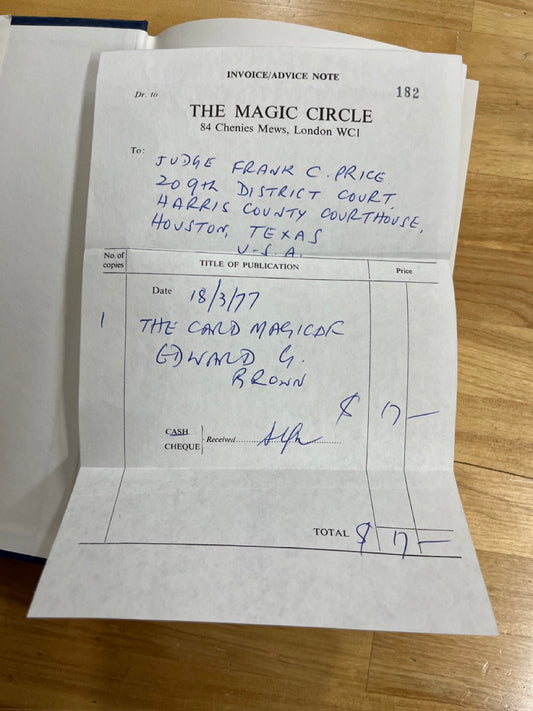 INVOICE/ADVICE NOTE
182
Dr. to
THE MAGIC CIRCLE
84 Chenies Mews, London WC1
To: JUDGE FRANK C. PRICE
209th DISTRICT COURT,
HARRIS COUNTY COURTHOUSE,
HOUSTON, TEXAS
U.S.A.
No. of copies TITLE OF PUBLICATION Price
Date 18/3/77
1 THE CARD MAGIC OF
EDWARD G.
BROWN
$ 17 —
CASH
CHEQUE Received
TOTAL $ 17 —